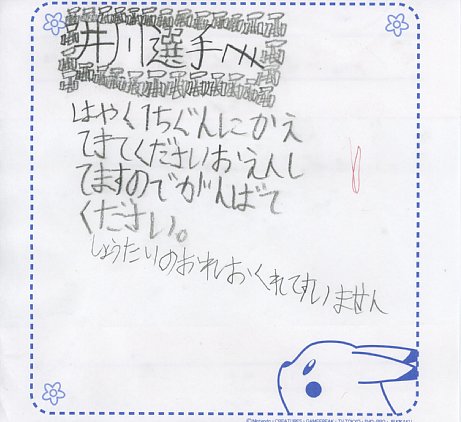 井川選手へ
はやく1ちぐんにかえ
てきてくださいおえんし
てますのでがんばて
ください。
しょうたいのおれいおくれてすいません